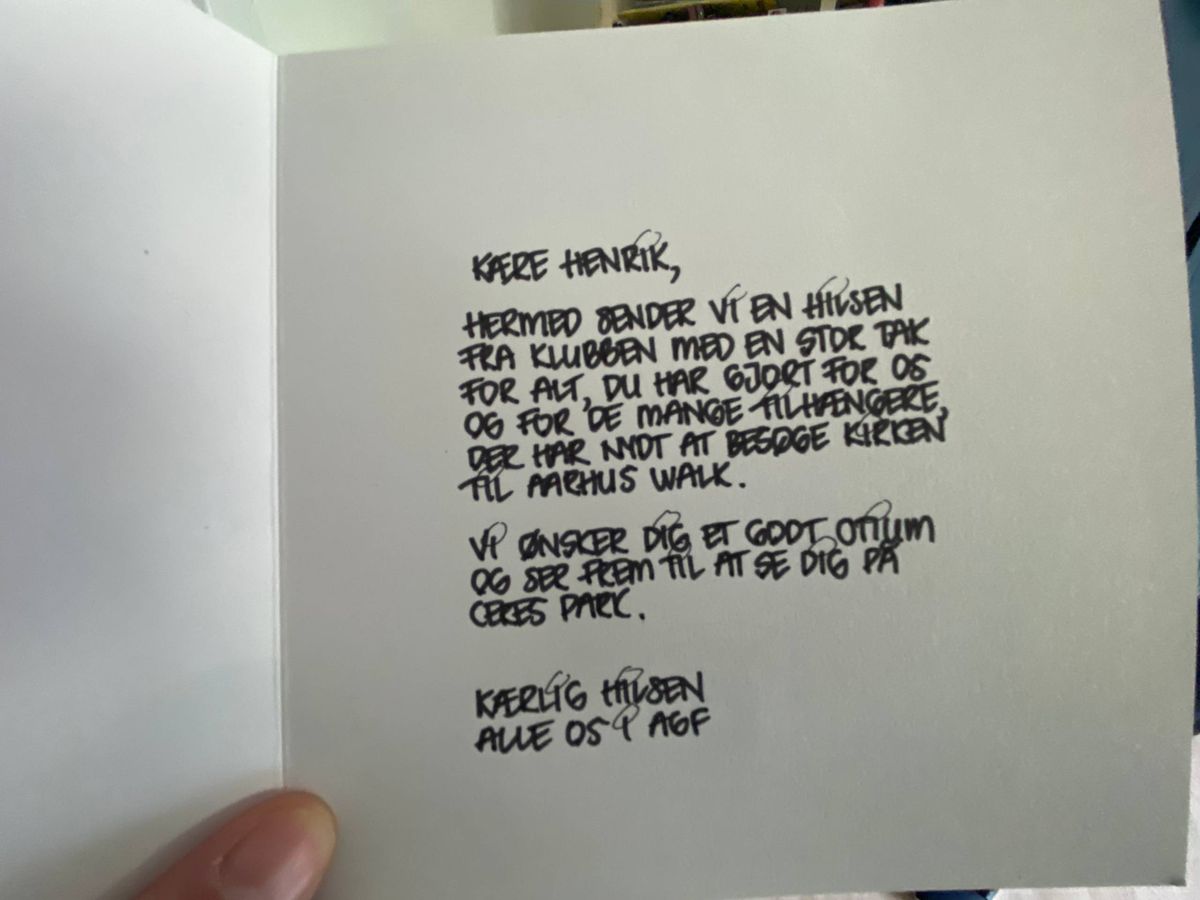 KÆRE HENRIK,
HERMED SENDER VI EN HILSEN
FRA KLUBBEN MED EN STOR TAK
FOR ALT, DU HAR GJORT FOR OS
OG FOR DE MANGE TILHÆNGERE,
DER HAR NYDT AT BESØGE KIRKEN
TIL AARHUS WALK.
VI ØNSKER DIG ET GODT OTIUM
OG SER FREM TIL AT SE DIG PÅ
CERES PARK.
KÆRLIG HILSEN
ALLE OS I AGF